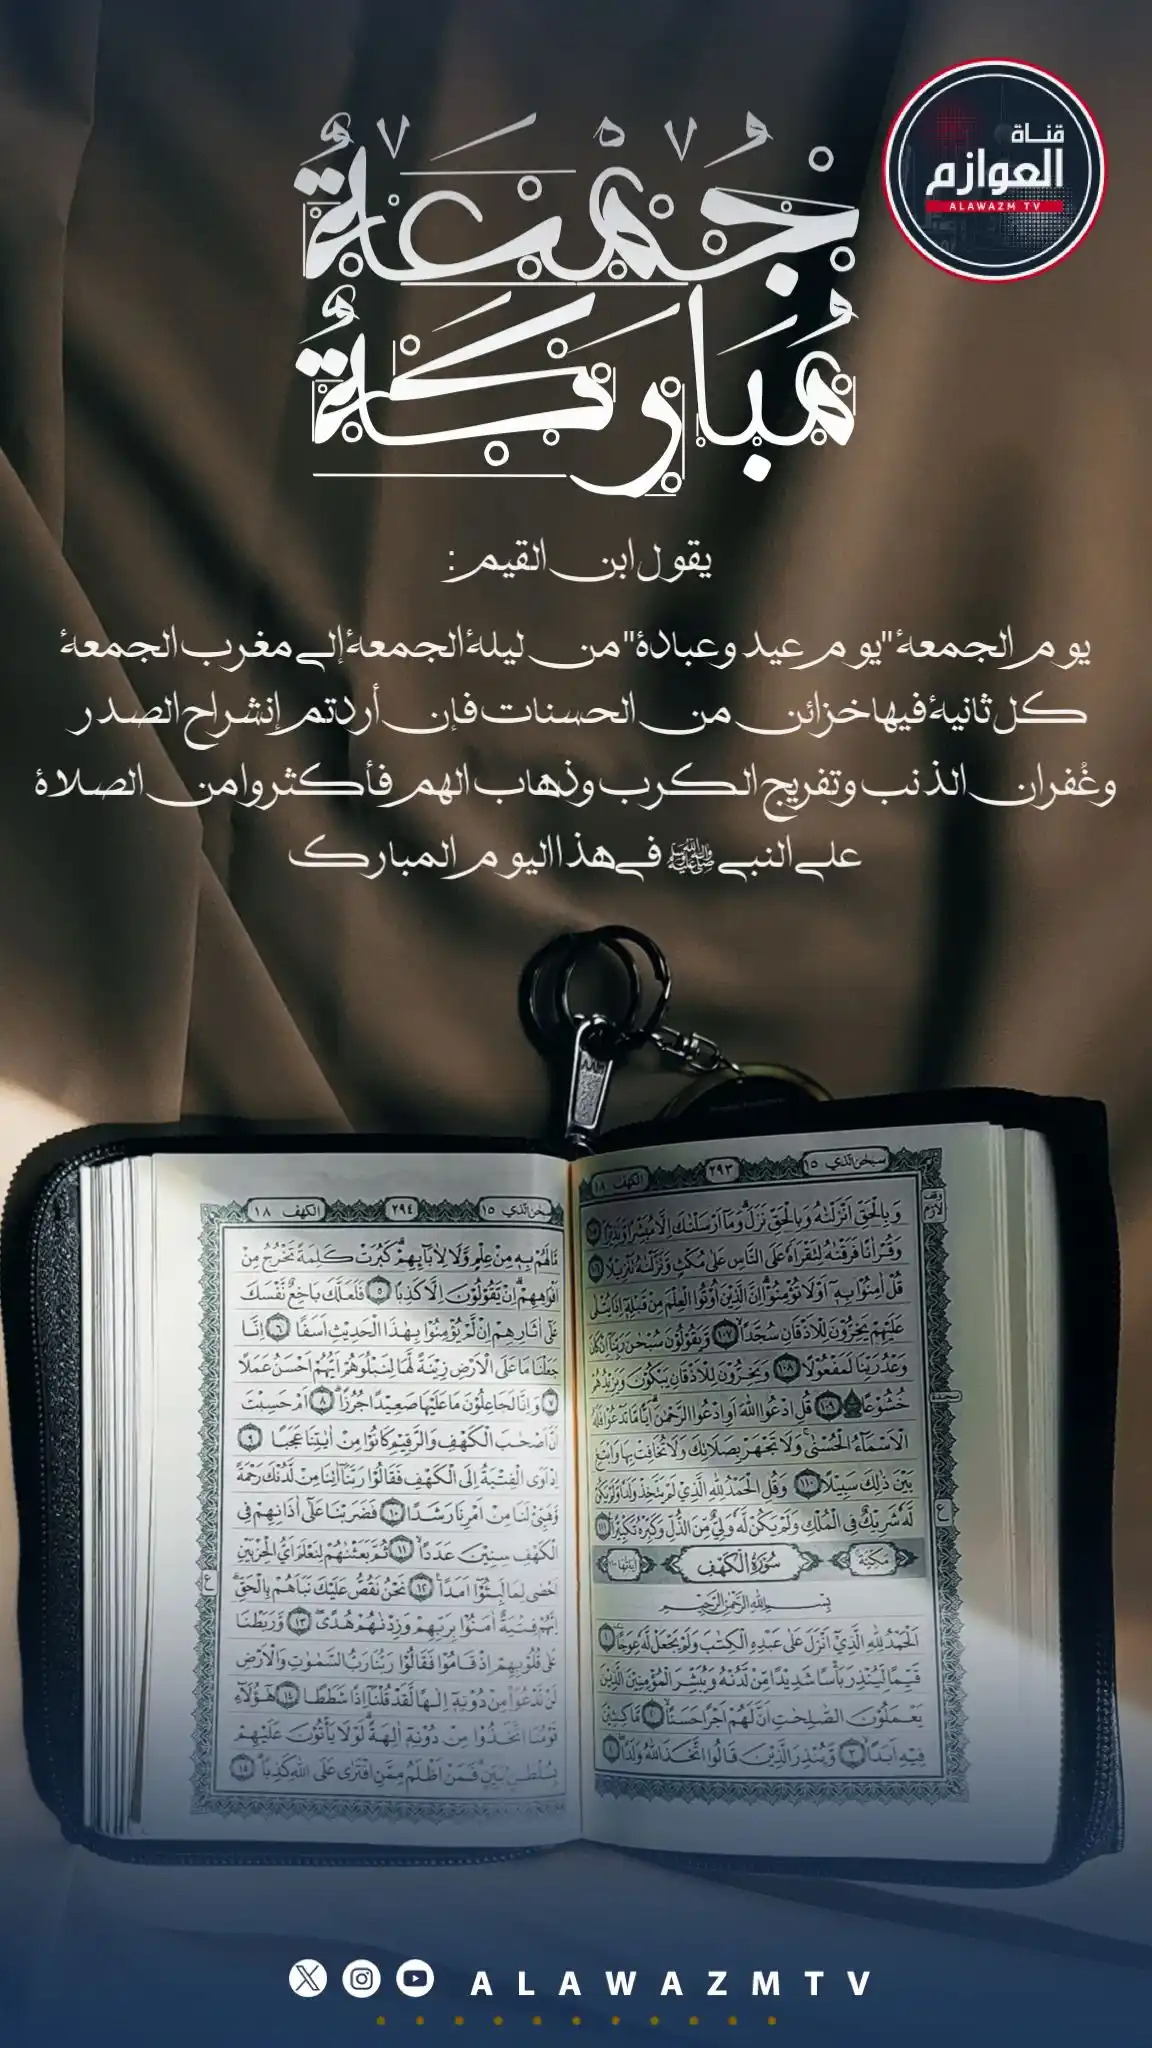 قناة
العوازم
ALAWAZM TV
جُمْعَةٌ
مُبَارَكَةٌ
يقول ابن القيم:
يوم الجمعة "يوم عيد وعبادة" من ليلة الجمعة إلى مغرب الجمعة
كل ثانية فيها خزائن من الحسنات فإن أردتم إنشراح الصدر
وغُفران الذنب وتفريج الكرب وذهاب الهم فأكثروا من الصلاة
على النبي ﷺ في هذا اليوم المبارك
سبحن الذي ١٥
٢٩٣
الكهف ١٨
وَبِالْحَقِّ اَنْزَلْنٰهُ وَبِالْحَقِّ نَزَلَ وَمَا اَرْسَلْنٰكَ اِلَّا مُبَشِّرًا وَنَذِيرًا ١٠٥
وَقُرْاٰنًا فَرَقْنٰهُ لِتَقْرَاَهُ عَلَى النَّاسِ عَلٰى مُكْثٍ وَنَزَّلْنٰهُ تَنْزِيلًا ١٠٦
قُلْ اٰمِنُوْا بِهٖٓ اَوْ لَا تُؤْمِنُوْا اِنَّ الَّذِيْنَ اُوْتُوا الْعِلْمَ مِنْ قَبْلِهٖ اِذَا يُتْلٰى
عَلَيْهِمْ يَخِرُّوْنَ لِلْاَذْقَانِ سُجَّدًا ١٠٧ وَّيَقُوْلُوْنَ سُبْحٰنَ رَبِّنَا اِنْ كَانَ
وَعْدُ رَبِّنَا لَمَفْعُوْلًا ١٠٨ وَيَخِرُّوْنَ لِلْاَذْقَانِ يَبْكُوْنَ وَيَزِيْدُهُمْ
خُشُوْعًا ١٠٩ قُلِ ادْعُوا اللّٰهَ اَوِ ادْعُوا الرَّحْمٰنَ اَيًّا مَّا تَدْعُوْا فَلَهُ
الْاَسْمَآءُ الْحُسْنٰى وَلَا تَجْهَرْ بِصَلَاتِكَ وَلَا تُخَافِتْ بِهَا وَابْتَغِ
بَيْنَ ذٰلِكَ سَبِيْلًا ١١٠ وَقُلِ الْحَمْدُ لِلّٰهِ الَّذِيْ لَمْ يَتَّخِذْ وَلَدًا وَّلَمْ يَكُنْ
لَّهٗ شَرِيْكٌ فِى الْمُلْكِ وَلَمْ يَكُنْ لَّهٗ وَلِيٌّ مِّنَ الذُّلِّ وَكَبِّرْهُ تَكْبِيْرًا ١١١
مَكِّيَّة سُوْرَةُ الْكَهْفِ اٰيَاتُهَا ١١٠
بِسْمِ اللّٰهِ الرَّحْمٰنِ الرَّحِيْمِ
اَلْحَمْدُ لِلّٰهِ الَّذِيْٓ اَنْزَلَ عَلٰى عَبْدِهِ الْكِتٰبَ وَلَمْ يَجْعَلْ لَّهٗ عِوَجًا ١
قَيِّمًا لِّيُنْذِرَ بَاْسًا شَدِيْدًا مِّنْ لَّدُنْهُ وَيُبَشِّرَ الْمُؤْمِنِيْنَ الَّذِيْنَ
يَعْمَلُوْنَ الصّٰلِحٰتِ اَنَّ لَهُمْ اَجْرًا حَسَنًا ٢ مَّاكِثِيْنَ
فِيْهِ اَبَدًا ٣ وَّيُنْذِرَ الَّذِيْنَ قَالُوا اتَّخَذَ اللّٰهُ وَلَدًا ٤
سبحن الذي ١٥
٢٩٤
الكهف ١٨
مَا لَهُمْ بِهٖ مِنْ عِلْمٍ وَّلَا لِاٰبَآئِهِمْ كَبُرَتْ كَلِمَةً تَخْرُجُ مِنْ
اَفْوَاهِهِمْ اِنْ يَّقُوْلُوْنَ اِلَّا كَذِبًا ٥ فَلَعَلَّكَ بَاخِعٌ نَّفْسَكَ
عَلٰٓى اٰثَارِهِمْ اِنْ لَّمْ يُؤْمِنُوْا بِهٰذَا الْحَدِيْثِ اَسَفًا ٦ اِنَّا
جَعَلْنَا مَا عَلَى الْاَرْضِ زِيْنَةً لَّهَا لِنَبْلُوَهُمْ اَيُّهُمْ اَحْسَنُ عَمَلًا
٧ وَاِنَّا لَجَاعِلُوْنَ مَا عَلَيْهَا صَعِيْدًا جُرُزًا ٨ اَمْ حَسِبْتَ
اَنَّ اَصْحٰبَ الْكَهْفِ وَالرَّقِيْمِ كَانُوْا مِنْ اٰيٰتِنَا عَجَبًا ٩
اِذْ اَوَى الْفِتْيَةُ اِلَى الْكَهْفِ فَقَالُوْا رَبَّنَآ اٰتِنَا مِنْ لَّدُنْكَ رَحْمَةً
وَّهَيِّئْ لَنَا مِنْ اَمْرِنَا رَشَدًا ١٠ فَضَرَبْنَا عَلٰٓى اٰذَانِهِمْ فِى
الْكَهْفِ سِنِيْنَ عَدَدًا ١١ ثُمَّ بَعَثْنٰهُمْ لِنَعْلَمَ اَيُّ الْحِزْبَيْنِ
اَحْصٰى لِمَا لَبِثُوْٓا اَمَدًا ١٢ نَحْنُ نَقُصُّ عَلَيْكَ نَبَاَهُمْ بِالْحَقِّ
اِنَّهُمْ فِتْيَةٌ اٰمَنُوْا بِرَبِّهِمْ وَزِدْنٰهُمْ هُدًى ١٣ وَّرَبَطْنَا
عَلٰى قُلُوْبِهِمْ اِذْ قَامُوْا فَقَالُوْا رَبُّنَا رَبُّ السَّمٰوٰتِ وَالْاَرْضِ
لَنْ نَّدْعُوَا۟ مِنْ دُوْنِهٖٓ اِلٰهًا لَّقَدْ قُلْنَآ اِذًا شَطَطًا ١٤ هٰٓؤُلَآءِ
قَوْمُنَا اتَّخَذُوْا مِنْ دُوْنِهٖٓ اٰلِهَةً لَوْلَا يَاْتُوْنَ عَلَيْهِمْ
بِسُلْطٰنٍ بَيِّنٍ فَمَنْ اَظْلَمُ مِمَّنِ افْتَرٰى عَلَى اللّٰهِ كَذِبًا ١٥
ALAWAZMTV